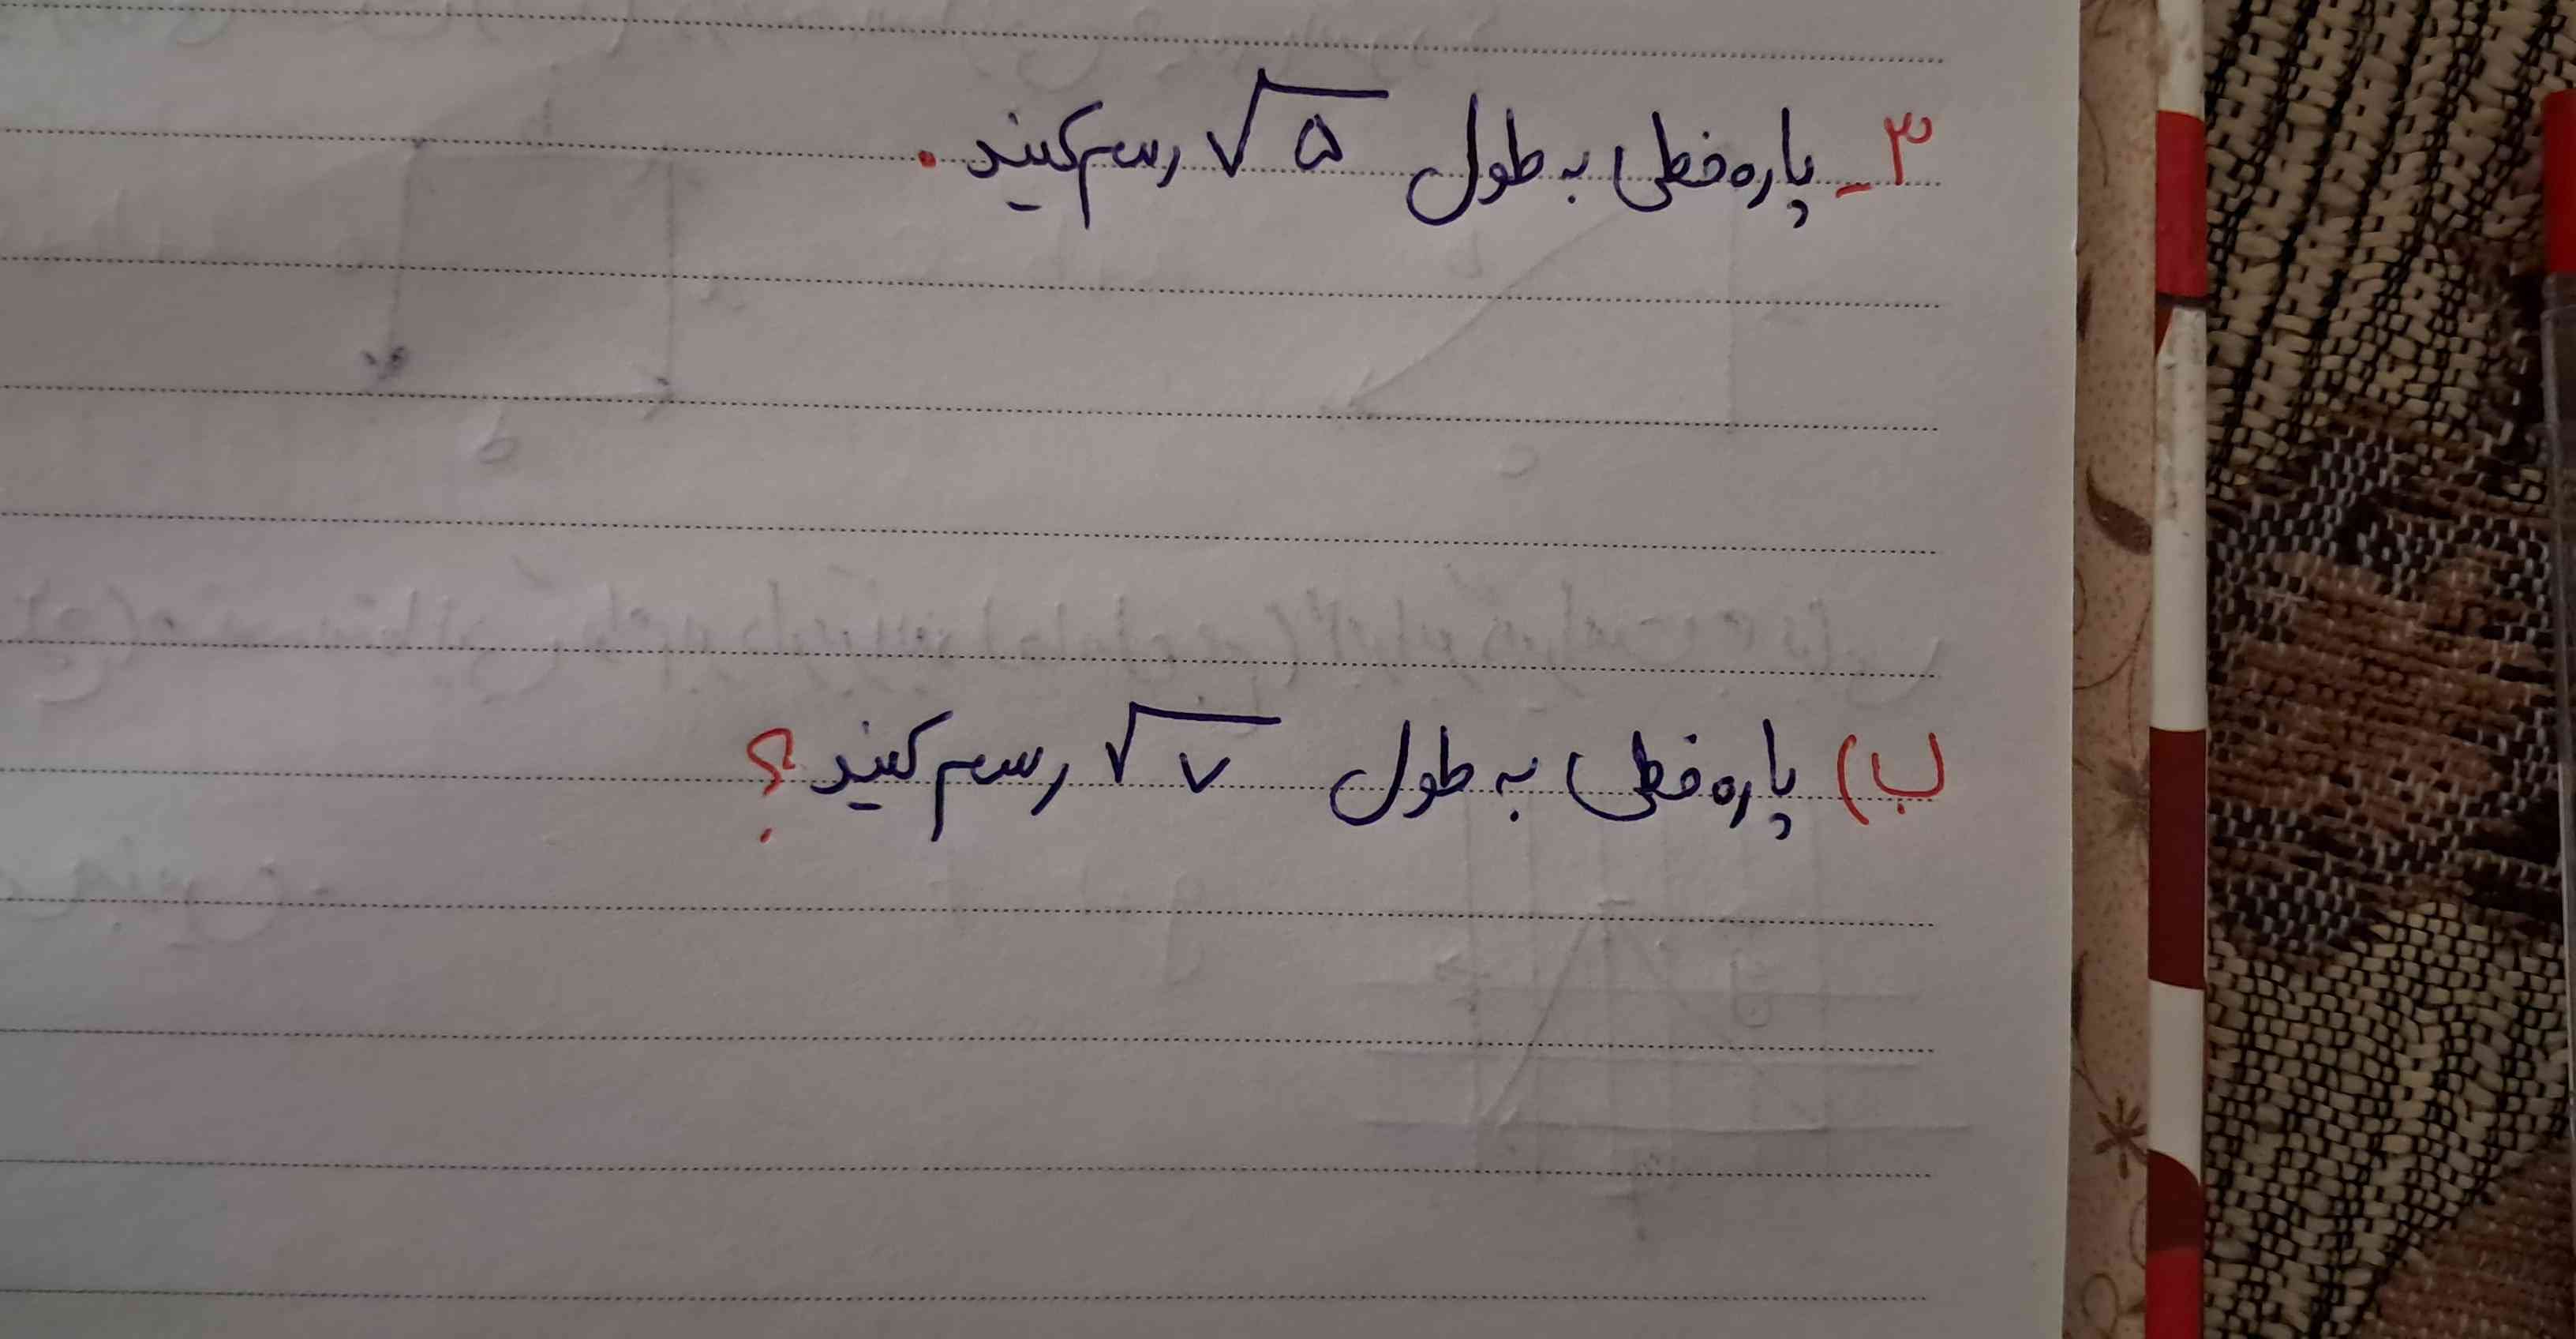 ۳_ پاره‌خطی به طول √۵ رسم کنید.
ب) پاره‌خطی به طول √۷ رسم کنید؟